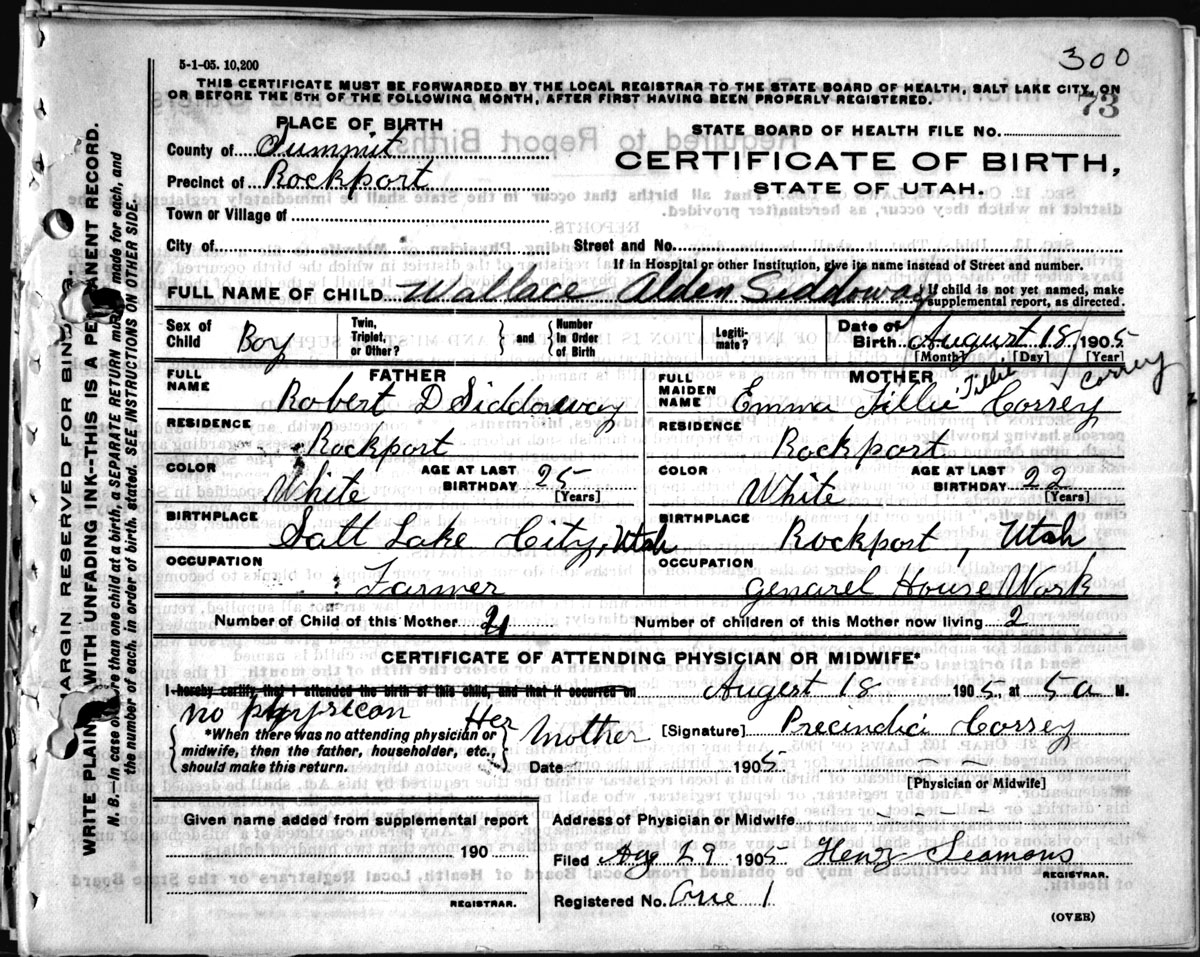 300
5-1-05. 10,200
THIS CERTIFICATE MUST BE FORWARDED BY THE LOCAL REGISTRAR TO THE STATE BOARD OF HEALTH, SALT LAKE CITY, ON
OR BEFORE THE 5TH OF THE FOLLOWING MONTH, AFTER FIRST HAVING BEEN PROPERLY REGISTERED.
73
PLACE OF BIRTH
STATE BOARD OF HEALTH FILE NO.
County of Summit
CERTIFICATE OF BIRTH,
Precinct of Rockport
STATE OF UTAH.
Town or Village of
City of
Street and No.
If in Hospital or other Institution, give its name instead of Street and number.
FULL NAME OF CHILD Wallace Alden Siddoway { If child is not yet named, make supplemental report, as directed.
Sex of Child Boy
Twin, Triplet, or Other?
} and { Number in Order of Birth
Legiti-mate?
Date of Birth August 18, 1905
[Month] [Day] [Year]
FATHER
FULL NAME Robert D Siddoway
RESIDENCE
Rockport
COLOR White AGE AT LAST BIRTHDAY 25 [Years]
BIRTHPLACE
Salt Lake City, Utah
OCCUPATION
Farmer
MOTHER
Tillie Correy
FULL MAIDEN NAME Emma Tillie Correy
RESIDENCE
Rockport
COLOR White AGE AT LAST BIRTHDAY 22 [Years]
BIRTHPLACE
Rockport, Utah
OCCUPATION
genarel House Work
Number of Child of this Mother 2
Number of children of this Mother now living 2
CERTIFICATE OF ATTENDING PHYSICIAN OR MIDWIFE*
I hereby certify, that I attended the birth of this child, and that it occurred on August 18 1905, at 5 a M.
no physicon Her Mother [Signature] Precindia Correy
{ *When there was no attending physician or midwife, then the father, householder, etc., should make this return. }
Date 1905
[Physician or Midwife]
Given name added from supplemental report
190
REGISTRAR.
Address of Physician or Midwife
Filed Aug 29 1905 Henry Seamons
REGISTRAR.
Registered No. One 1
(OVER)
MARGIN RESERVED FOR BINDING.
WRITE PLAINLY WITH UNFADING INK--THIS IS A PERMANENT RECORD.
N. B.--In case of more than one child at a birth, a SEPARATE RETURN must be made for each, and
the number of each, in order of birth, stated. SEE INSTRUCTIONS ON OTHER SIDE.